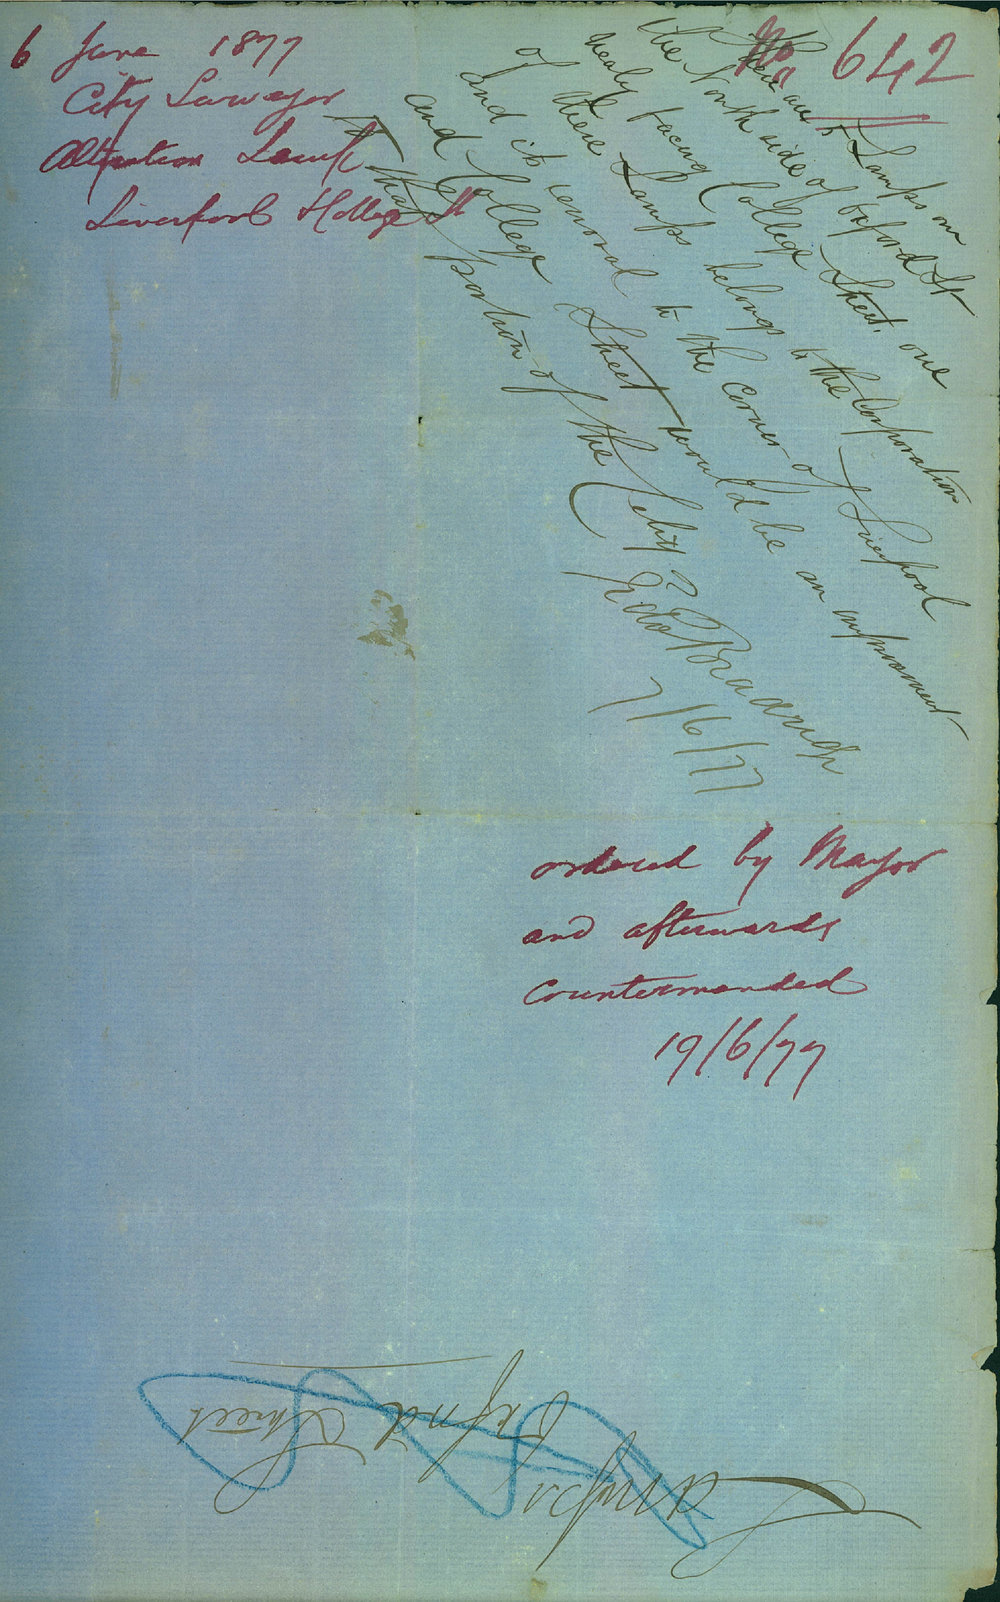 No 642
6 June 1877
City Surveyor
Alteration Lamp
Liverpool & College St
There are 2 Lamps on
the North side of Oxford St
nealy facing College Street, one
of these Lamps belongs to the Corporation
and its removal to the corner of Liverpool
and College Street would be an improvement
to that portion of the City
Edw Bradridge
7/6/77
ordered by Mayor
and afterwards
countermanded
19/6/77
Lamps
Oxford Street